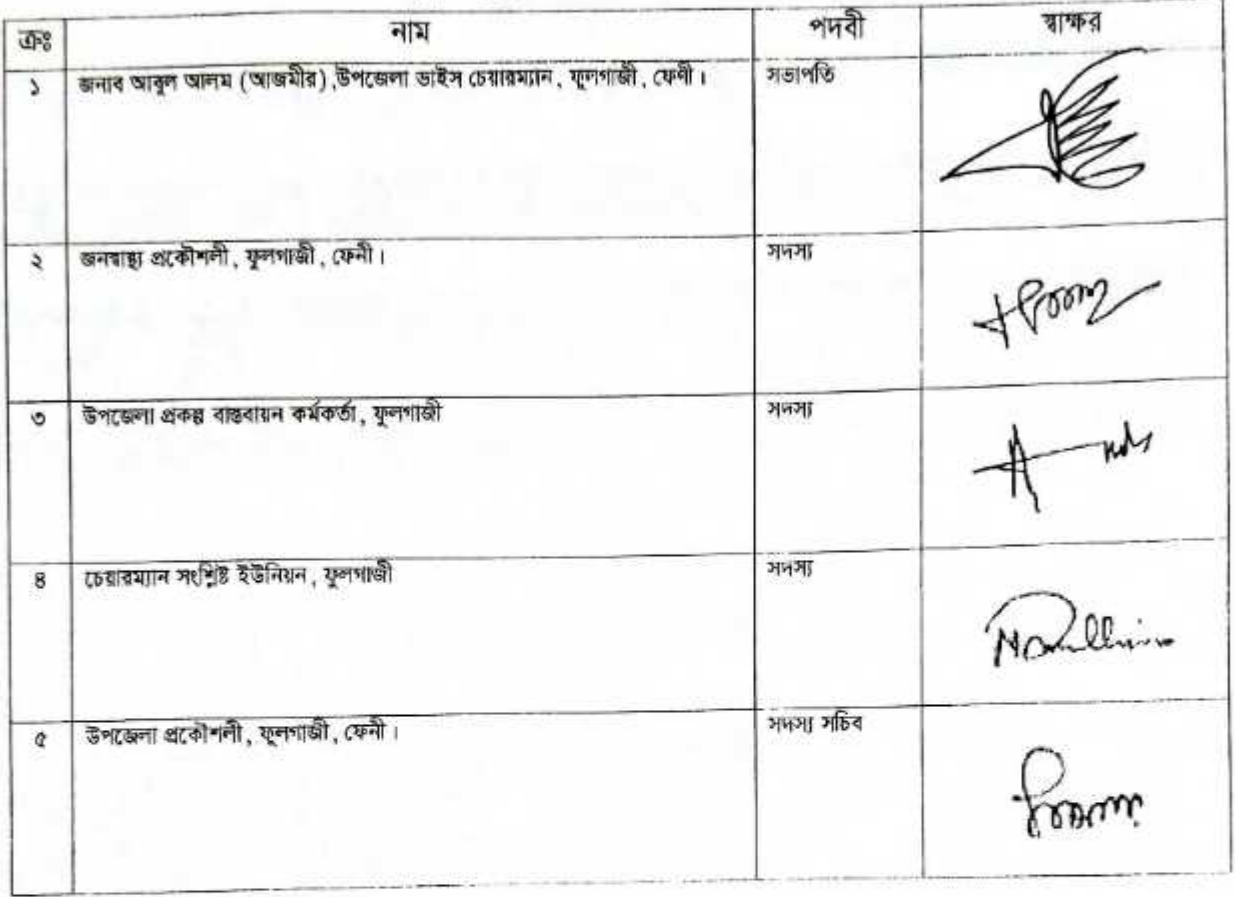 ক্রঃ নাম পদবী স্বাক্ষর
১ জনাব আবুল আলম (আজমীর) ,উপজেলা ভাইস চেয়ারম্যান , ফুলগাজী , ফেণী । সভাপতি
২ জনস্বাস্থ্য প্রকৌশলী , ফুলগাজী , ফেনী । সদস্য
৩ উপজেলা প্রকল্প বাস্তবায়ন কর্মকর্তা , ফুলগাজী সদস্য
৪ চেয়ারম্যান সংশ্লিষ্ট ইউনিয়ন , ফুলগাজী সদস্য
৫ উপজেলা প্রকৌশলী , ফুলগাজী , ফেনী । সদস্য সচিব